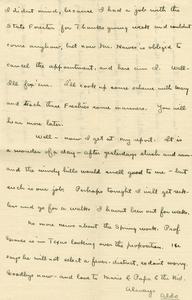 I didn't mind, because I had a job with the
State Forester for Thanksgiving week and couldn't
come anyhow, but now Mr. Hawes is obliged to
cancel the appointment, and here am I. Well-
I'll fix 'em. I'll cook up some scheme with Mary
and teach these Freshies some manners. You will
hear more later.
Well - now I get at my report. It is
a wonder of a day - after yesterday's
and the sunny hills would smell good to me - but
such is our job. Perhaps tonight I will get
and go for a walk. I haven't been out for weeks.
No more news about the Spring work. Prof
is in Texas looking over the proposition.
says he will not select a fever-district, so don't worry.
Goodbye now - and love to Marie & Papa & the Kid.
Always
Aldo